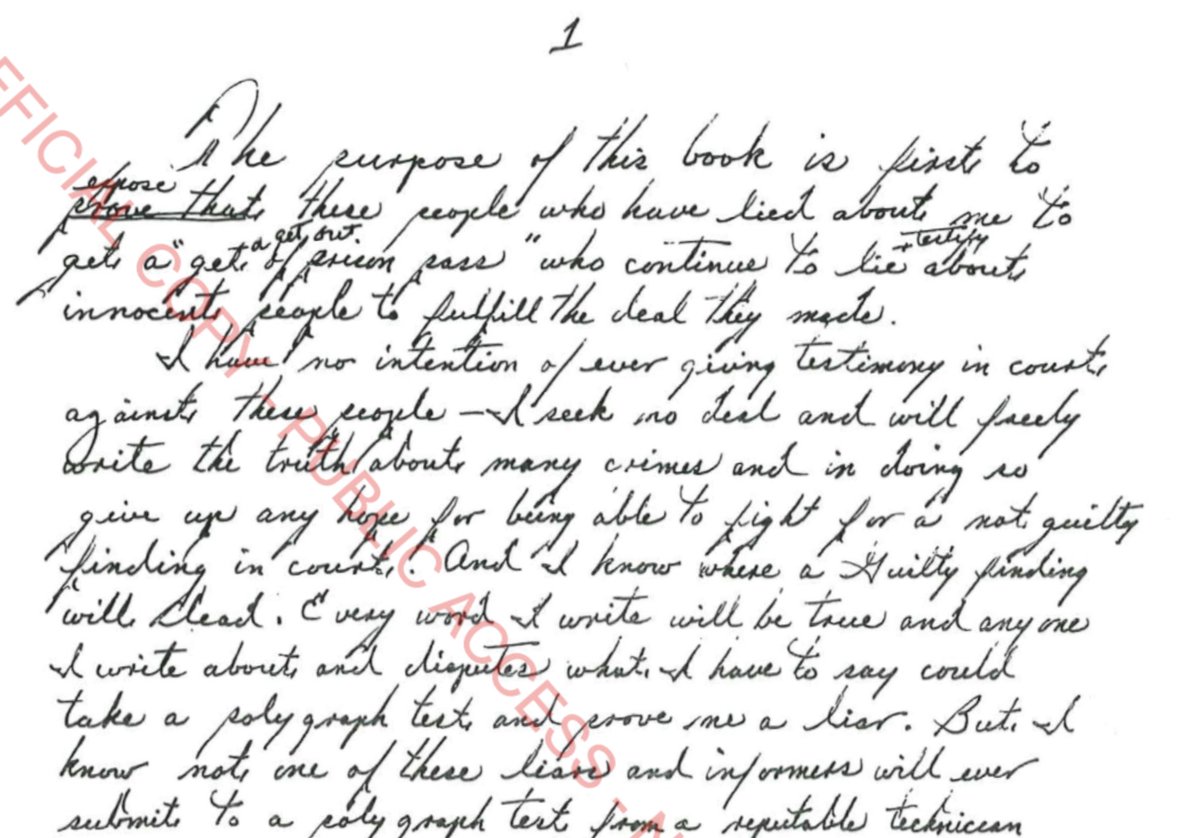 1
The purpose of this book is first to
expose
prove that these people who have lied about me to
a get out
+ testify
get a "get of prison pass" who continue to lie about
innocent people to fulfill the deal they made.
I have no intention of ever giving testimony in court
against these people — I seek no deal and will freely
write the truth about many crimes and in doing so
give up any hope for being able to fight for a not guilty
finding in court. And I know where a Guilty finding
will lead. Every word I write will be true and anyone
I write about and disputes what I have to say could
take a polygraph test and prove me a liar. But I
know not one of these liars and informers will ever
submit to a polygraph test from a reputable technician
OFFICIAL COPY - PUBLIC ACCESS -